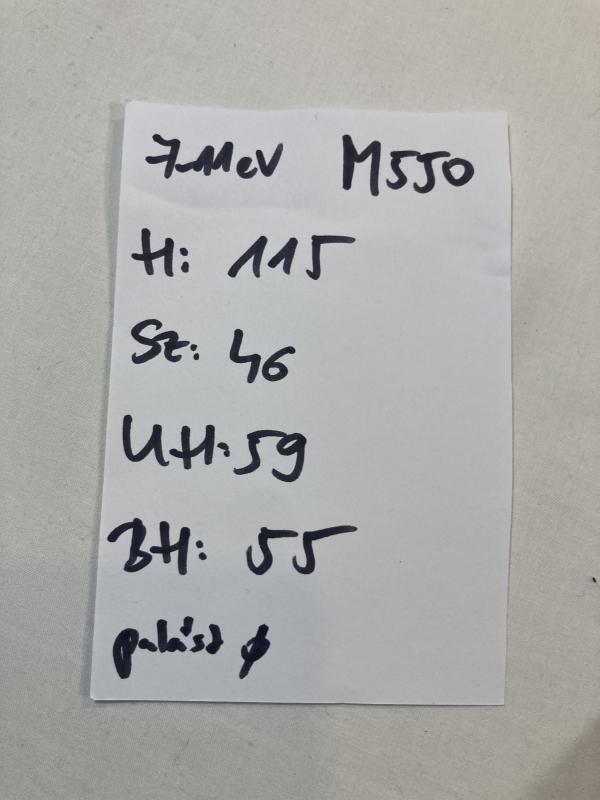 7-11 év M550
H: 115
Sz: 46
UH: 59
BH: 55
palást ø